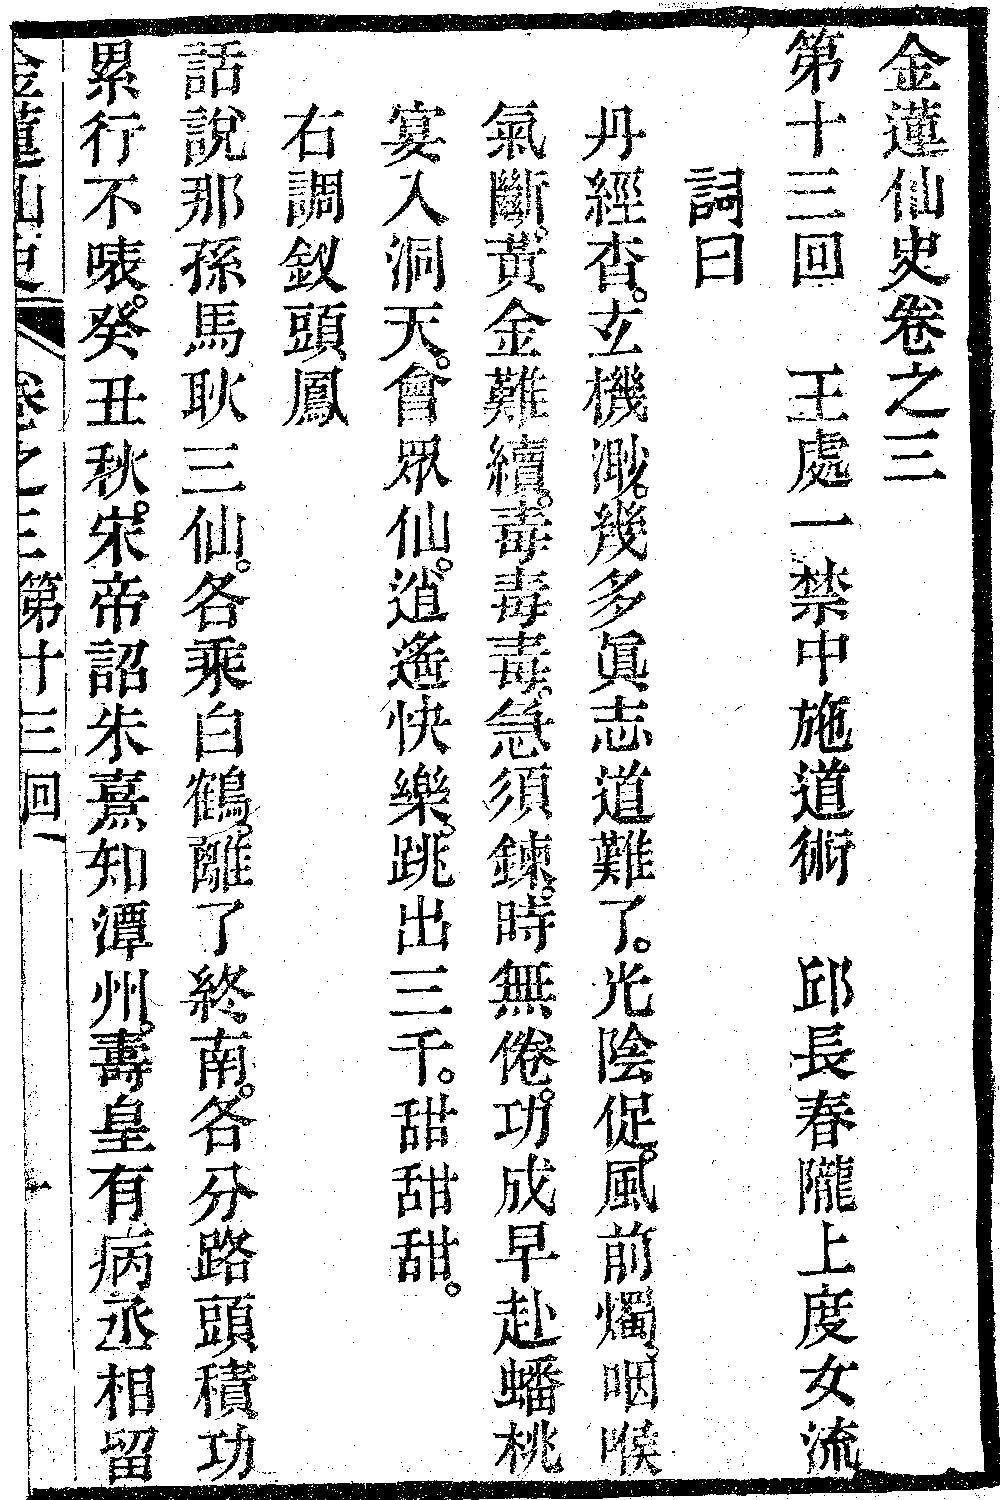 金蓮仙史卷之三
第十三回　王處一禁中施道術　邱長春隴上度女流
詞曰
丹經杳。玄機渺。幾多眞志道難了。光陰促。風前燭。咽喉
氣斷。黃金難續。毒毒毒。急須鍊。時無倦。功成早赴蟠桃
宴。入洞天。會眾仙。逍遙快樂。跳出三千。甜甜甜。
右調釵頭鳳
話說那孫馬耿三仙。各乘白鶴。離了終南。各分路頭積功
累行不唻。癸丑秋。宋帝詔朱熹知潭州。壽皇有病丞相留
金蓮仙史　卷之三第十三回　一